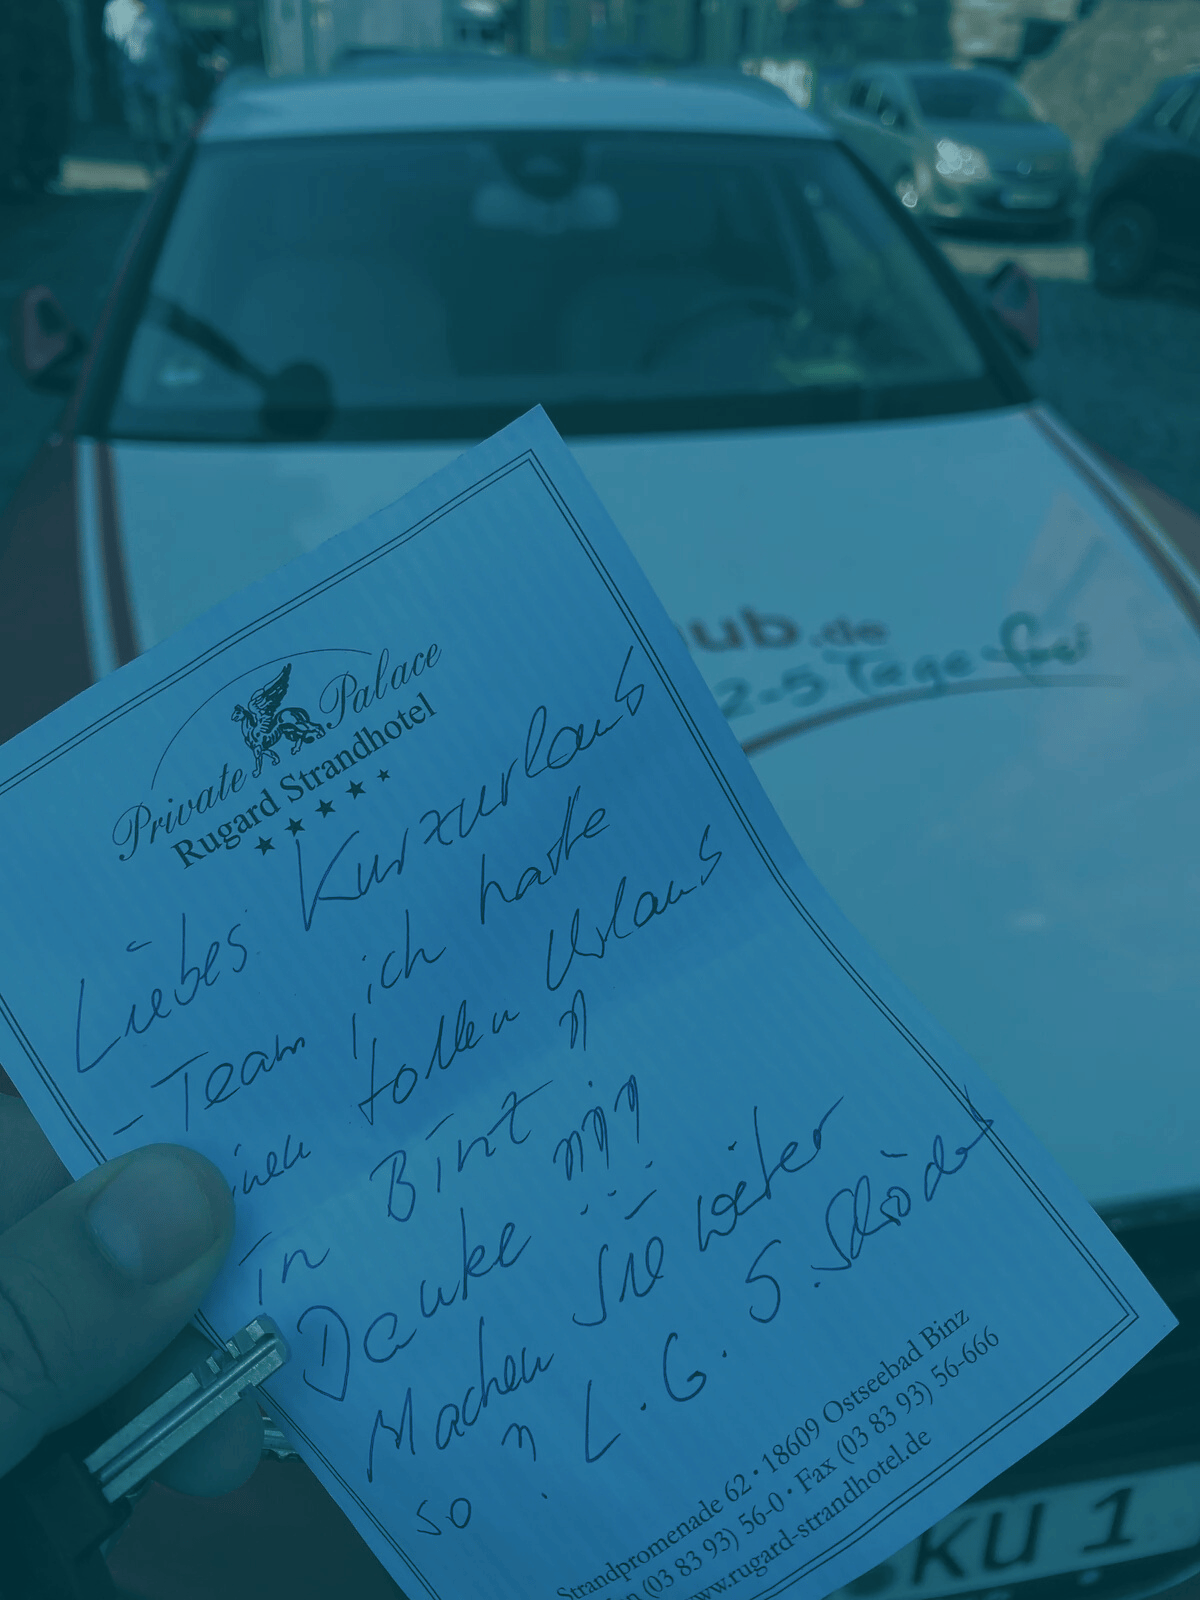 ub.de
2-5 Tage frei
Private Palace
Rugard Strandhotel
Liebes Kurzurlaub
-Team, ich hatte
einen tollen Urlaub
in Binz!
Danke !!!
Machen Sie weiter
so! L.G. S. Schröder
Strandpromenade 62 · 18609 Ostseebad Binz
(03 83 93) 56-0 · Fax (03 83 93) 56-666
www.rugard-strandhotel.de
KU 1